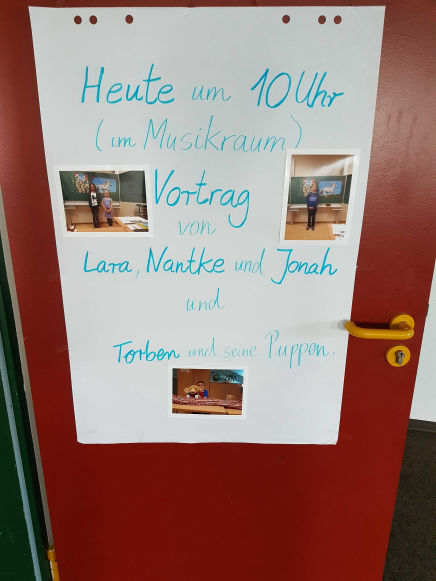 Heute um 10 Uhr
(im Musikraum)
Vortrag
von
Lara, Nantke und Jonah
und
Torben und seine Puppen.